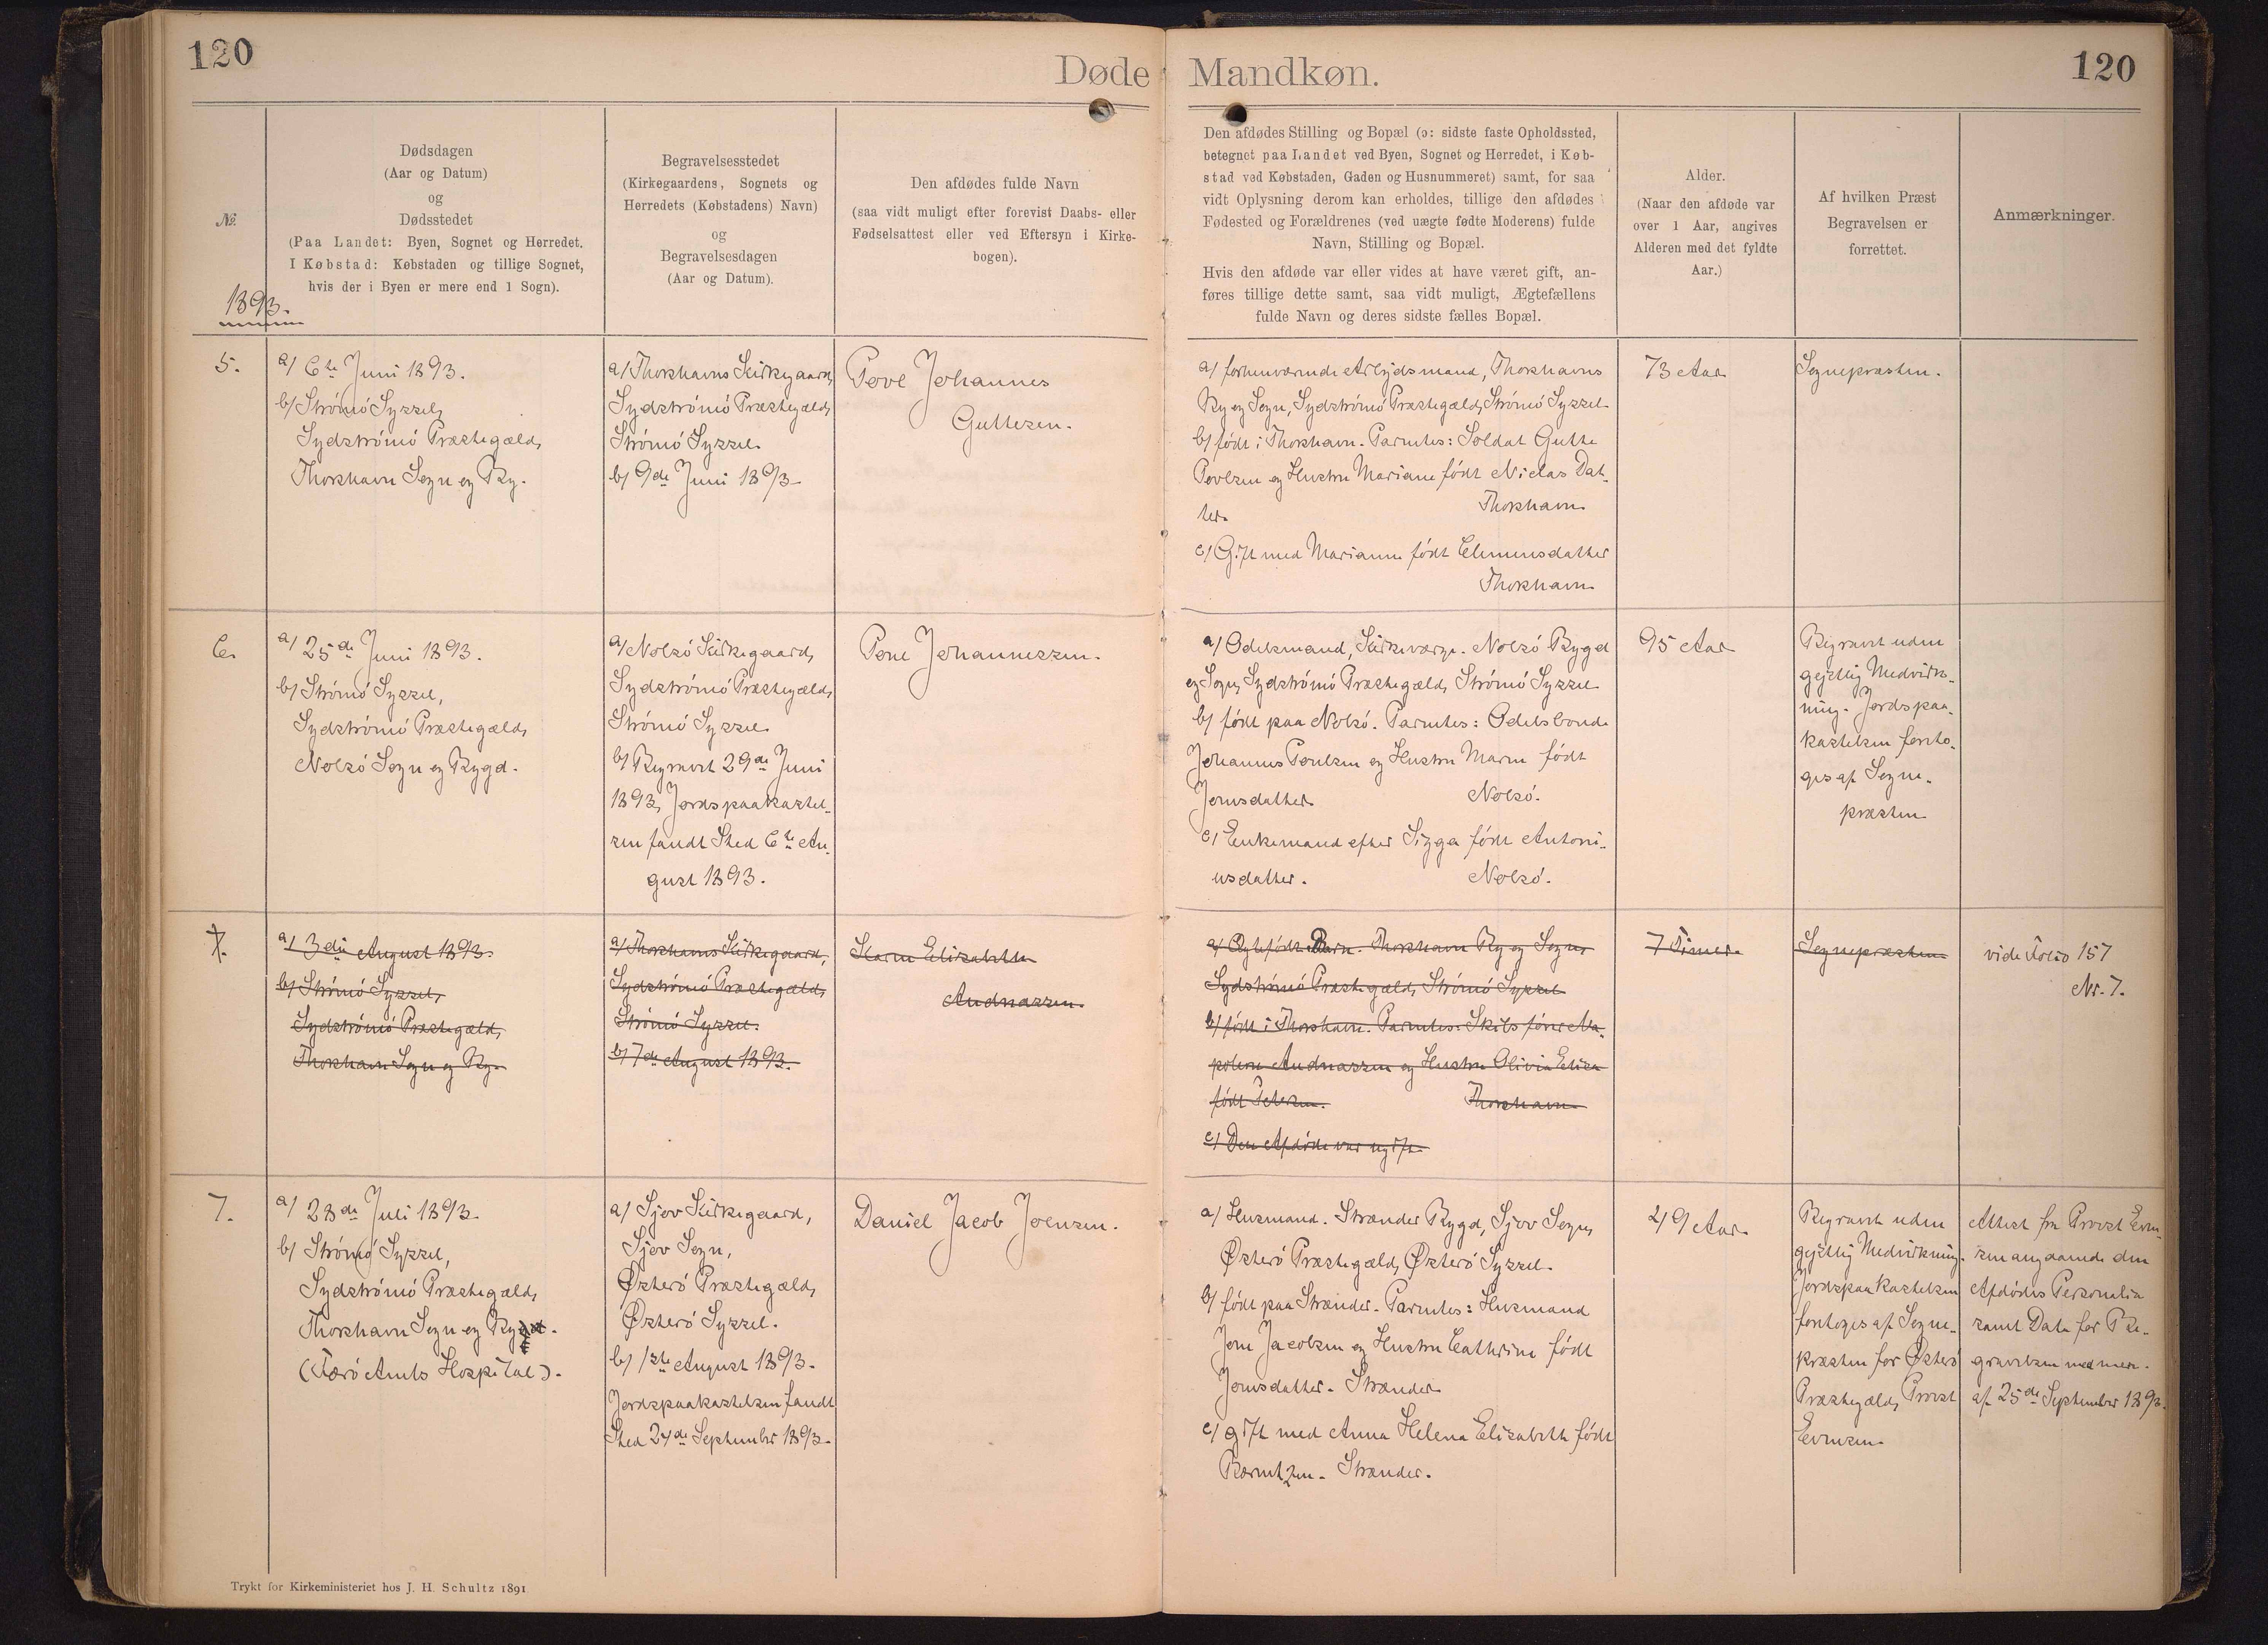 120
Døde Mandkøn.
120
№
1893.
Dødsdagen
(Aar og Datum)
og
Dødsstedet
(Paa Landet: Byen, Sognet og Herredet.
I Købstad: Købstaden og tillige Sognet,
hvis der i Byen er mere end 1 Sogn).
Begravelsesstedet
(Kirkegaardens, Sognets og
Herredets (Købstadens) Navn)
og
Begravelsesdagen
(Aar og Datum).
Den afdødes fulde Navn
(saa vidt muligt efter forevist Daabs- eller
Fødselsattest eller ved Eftersyn i Kirke-
bogen).
Den afdødes Stilling og Bopæl (ɔ: sidste faste Opholdssted,
betegnet paa Landet ved Byen, Sognet og Herredet, i Køb-
stad ved Købstaden, Gaden og Husnummeret) samt, for saa
vidt Oplysning derom kan erholdes, tillige den afdødes
Fødested og Forældrenes (ved uægte fødte Moderens) fulde
Navn, Stilling og Bopæl.
Hvis den afdøde var eller vides at have været gift, an-
føres tillige dette samt, saa vidt muligt, Ægtefællens
fulde Navn og deres sidste fælles Bopæl.
Alder.
(Naar den afdøde var
over 1 Aar, angives
Alderen med det fyldte
Aar.)
Af hvilken Præst
Begravelsen er
forrettet.
Anmærkninger.
5.
a/ 6te Juni 1893.
b/ Strömö Syssel,
Sydströmö Præstegæld,
Thorshavn Sogn og By.
a/ Thorshavns Kirkegaard,
Sydströmö Præstegæld,
Strömö Syssel.
b/ 9de Juni 1893.
Povl Johannes
Guttesen.
a/ forhenværende Arbejdsmand, Thorshavns
By og Sogn, Sydströmö Præstegæld, Strömö Syssel
b/ födt i Thorshavn. Parentes: Soldat Gutte
Povlsen og Hustru Mariane födt Niclas Dat-
ter. Thorshavn
c/ Gift med Marianne födt Clemensdatter
Thorshavn
73 Aar
Sognepræsten.
6.
a/ 25de Juni 1893.
b/ Strömö Syssel,
Sydströmö Præstegæld,
Nolsö Sogn og Bygd.
a/ Nolsö Kirkegaard,
Sydströmö Præstegæld,
Strömö Syssel
b/ Begravet 29de Juni
1893, Jordspaakastel-
sen fandt Sted 6te Au-
gust 1893.
Pone Johannessen.
a/ Odelsmand, Kirkeværge. Nolsö Bygd
og Sogn, Sydströmö Præstegæld, Strömö Syssel
b/ födt paa Nolsö. Parentes: Odelsbonde
Johannes Poulsen og Hustru Maren födt
Jonsdatter Nolsö.
c/ Enkemand efter Sigga födt Antoni-
usdatter. Nolsö.
95 Aar
Begravet uden
gejstlig Medvirk-
ning. Jordspaa-
kastelsen foreto-
ges af Sogne-
præsten
7.
a/ 3die August 1893.
b/ Strömö Syssel,
Sydströmö Præstegæld,
Thorshavn Sogn og By.
a/ Thorshavns Kirkegaard,
Sydströmö Præstegæld,
Strömö Syssel.
b/ 7de August 1893.
Karen Elisabeth
Andreassen.
a/ Ægtefödt Barn. Thorshavn By og Sogn,
Sydströmö Præstegæld, Strömö Syssel
b/ födt i Thorshavn. Parentes: Skibsförer Na-
poleon Andreassen og Hustru Olivia Elisa
födt Petersen. Thorshavn
c/ Den Afdöde var ugift
7 Timer
Sognepræsten
vide Folio 157
Nr. 7.
7.
a/ 28de Juli 1893.
b/ Strömö Syssel,
Sydströmö Præstegæld,
Thorshavn Sogn og By.
(Færö Amts Hospital).
a/ Sjov Kirkegaard,
Sjov Sogn,
Østerö Præstegæld,
Østerö Syssel.
b/ 1ste August 1893.
Jordspaakastelsen fandt
Sted 24de September 1893.
Daniel Jacob Joensen.
a/ Husmand. Strænder Bygd, Sjov Sogn,
Østerö Præstegæld, Østerö Syssel.
b/ födt paa Strænder. Parentes: Husmand
Jone Jacobsen og Hustru Cathrine födt
Jonsdatter. Strænder
c/ gift med Anna Helena Elisabeth födt
Berentsen. Strænder.
49 Aar
Begravet uden
gejstlig Medvirkning.
Jordspaakastelsen
foretoges af Sogne-
præsten for Østerö
Præstegæld, Provst
Evensen
Attest fra Provst Even-
sen angaaende den
Afdödes Personalia
samt Dato for Be-
gravelsen med mere.
af 25de September 1893.
Trykt for Kirkeministeriet hos J. H. Schultz 1891